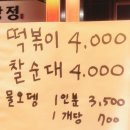 장정
떡볶이 4,000
찰순대 4,000
물오뎅 1인분 3,500
1개당 700